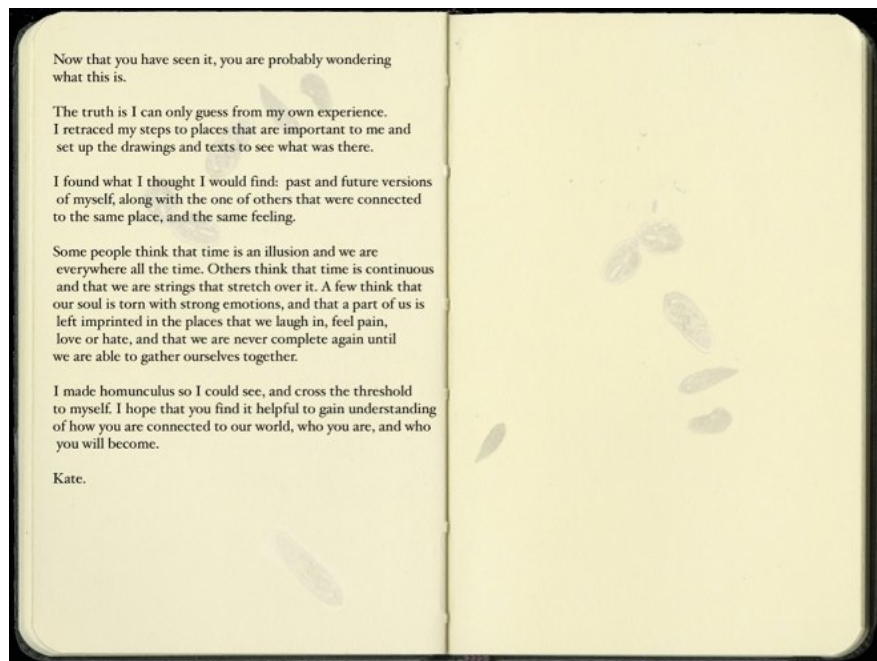 Now that you have seen it, you are probably wondering
what this is.
The truth is I can only guess from my own experience.
I retraced my steps to places that are important to me and
set up the drawings and texts to see what was there.
I found what I thought I would find: past and future versions
of myself, along with the one of others that were connected
to the same place, and the same feeling.
Some people think that time is an illusion and we are
everywhere all the time. Others think that time is continuous
and that we are strings that stretch over it. A few think that
our soul is torn with strong emotions, and that a part of us is
left imprinted in the places that we laugh in, feel pain,
love or hate, and that we are never complete again until
we are able to gather ourselves together.
I made homunculus so I could see, and cross the threshold
to myself. I hope that you find it helpful to gain understanding
of how you are connected to our world, who you are, and who
you will become.
Kate.